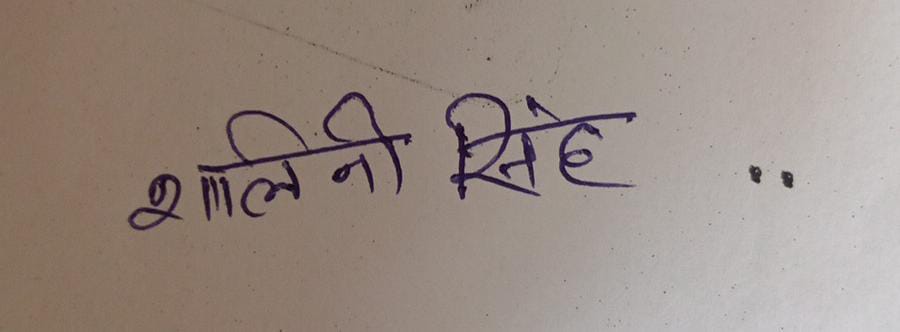 शालिनी सिंह ..